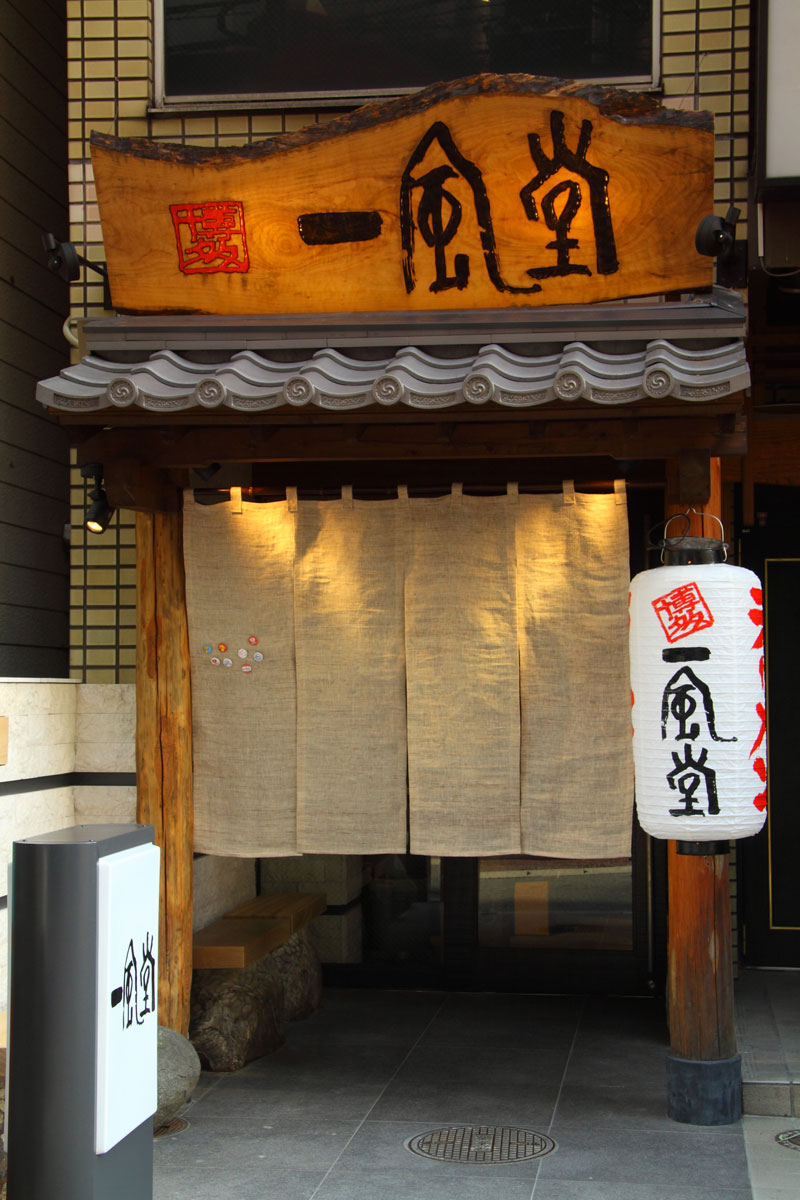 博多 一風堂
博多
一風堂
一風堂